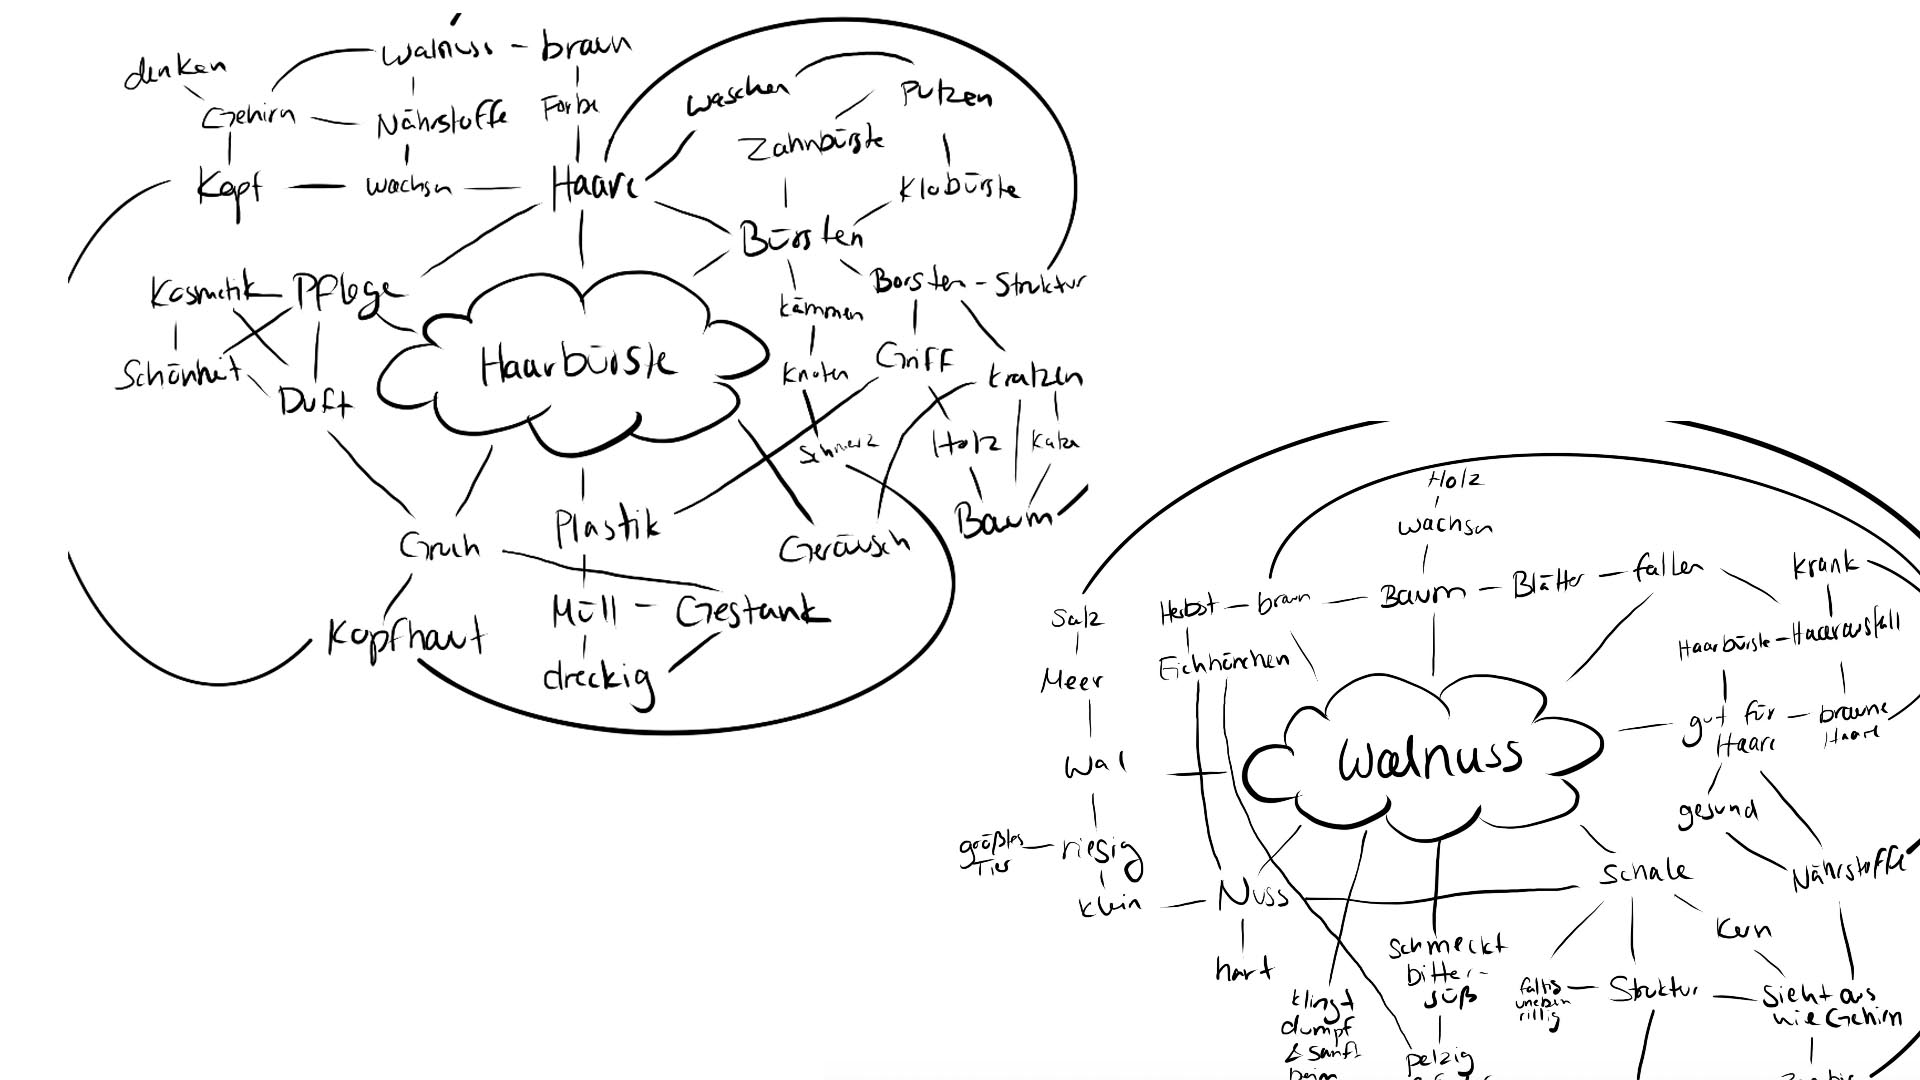 denken
Walnuss - braun
Gehirn
Nährstoffe
Farbe
Kopf
wachsen
Haare
waschen
Putzen
Zahnbürste
Klobürste
Bürsten
Borsten - Struktur
Kosmetik
Pflege
Schönheit
Duft
Haarbürste
kämmen
Knoten
Schmerz
Griff
kratzen
Holz
Katze
Baum
Geruch
Plastik
Geräusch
Müll - Gestank
dreckig
Kopfhaut
Holz
wachsen
Salz
Herbst - braun
Baum - Blätter - fallen
krank
Haarbürste - Haarausfall
Eichhörnchen
Meer
Wal
Walnuss
gut für
Haare
braune
Haare
gesund
größtes
Tier
riesig
klein
Nuss
hart
Schale
Nährstoffe
Kern
Schmeckt
bitter-
süß
faltig
uneben
rillig
Struktur
Sieht aus
wie Gehirn
klingt
dumpf
& sanft
beim
pelzig